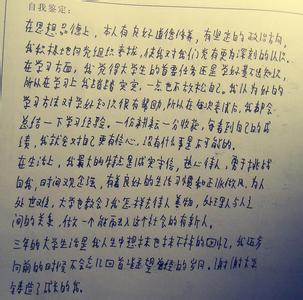 自我鉴定:
在思想品德上,本人有良好道德修养,有坚定的政治方向,
我积极地向党组织靠拢,使我对我们党有更为深刻的认识。
在学习方面,我觉得大学生的首要任务还是学好文化知识,
所以在学习上我踏踏实实,一点也不放松自己。我认为好的
学习方法对学好知识很有帮助,所以在每次考试后,我都会
总结一下学习经验。一份耕耘一分收获,每看到自己的成
绩,我就会对自己更有信心,没有什么事是不可能的。
在生活上,我最大的特点是诚实守信,热心待人,勇于挑战
自我,时间观念强,有着良好的生活习惯和正派作风,为人
处世坦,大学也教会了我怎样去待人善物,处理人与人之
间的关系,做一个能融入这个社会的有新人。
三年的大学生活是我人生中想抹也抹不掉的回忆,我还在
向前的时候不会忘记回首遥望曾经的岁月。谢谢大学